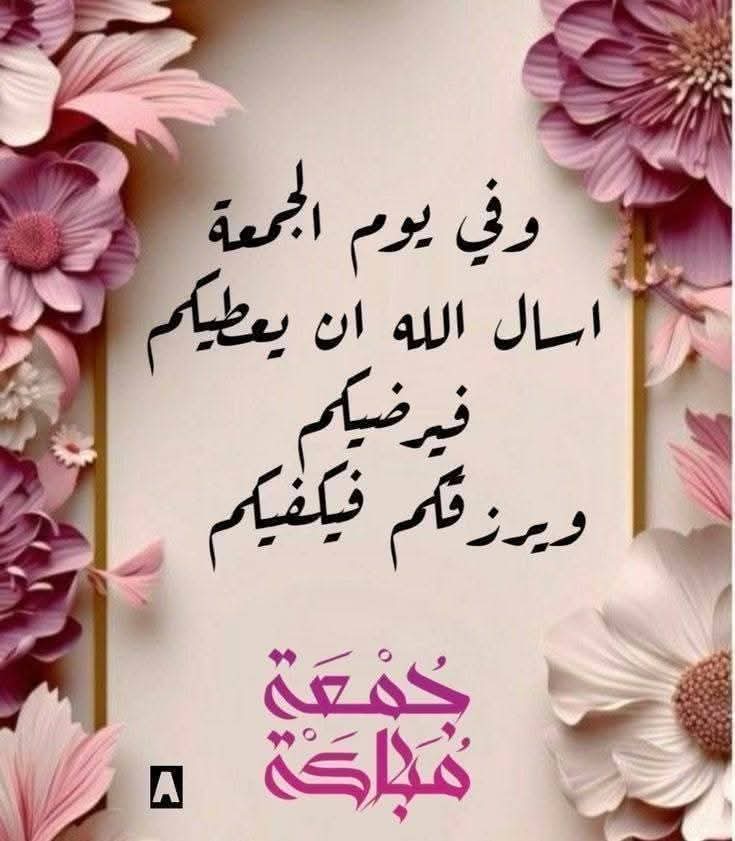 وفي يوم الجمعة
اسال الله ان يعطيكم
فيرضيكم
ويرزقكم فيكفيكم
جُمْعَة
مُبَارَكَة
A